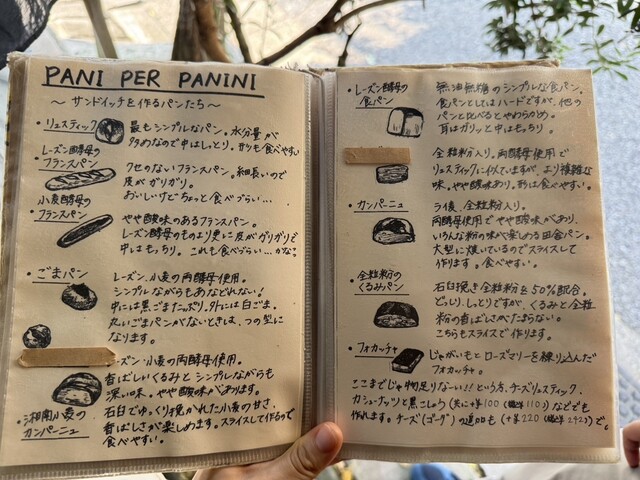 PANI PER PANINI
〜サンドイッチを作るパンたち〜
・リュスティック
最もシンプルなパン。水分量が
多めなので中はしっとり。耳も食べやすい
レーズン酵母の
フランスパン
クセのないフランスパン。細長いので
皮がガリガリ。
おいしいけどちょっと食べづらい…
小麦酵母の
フランスパン
やや酸味のあるフランスパン。
レーズン酵母のものより更に皮がガリガリで
中はもっちり。これも食べづらい…かな?
・ごまパン
レーズン、小麦の両酵母使用。
シンプルながらもあなどれない!
中には黒ごまたっぷり。外には白ごま。
丸いごまパンがないときは、つの型に
なります。
レーズン・小麦の両酵母使用。
香ばしいくるみとシンプルながらも
深い味。やや酸味があります。
・湘南小麦の
カンパーニュ
石臼でゆっくり挽かれた小麦の甘さ、
香ばしさが楽しめます。スライスして作るので
食べやすい。
・レーズン酵母の
食パン
無油無糖のシンプルな食パン。
食パンとしてはハードですが、他の
パンと比べるとやわらかめ。
耳はガリッと中はもっちり。
全粒粉入り。両酵母使用で
リュスティックに似ていますが、より複雑な
味。やや酸味あり。形は食べやすい。
・カンパーニュ
ライ麦、全粒粉入り。
両酵母使用でやや酸味があり、
いろんな粉の味が楽しめる田舎パン。
大型に焼いているのでスライスして
作ります。食べやすい。
・全粒粉の
くるみパン
石臼挽き全粒粉を50%配合。
どっしり、しっとりですが、くるみと全粒
粉の香ばしさがたまらない。
こちらもスライスで作ります。
・フォカッチャ
じゃがいもとローズマリーを練り込んだ
フォカッチャ。
ここまでじゃ物足りない!!という方、チーズリュスティック、
カシューナッツと黒こしょう(共に+¥100(税込110)などでも
作れます。チーズ(ゴーダ)の追加も(+¥220(税込242)で。